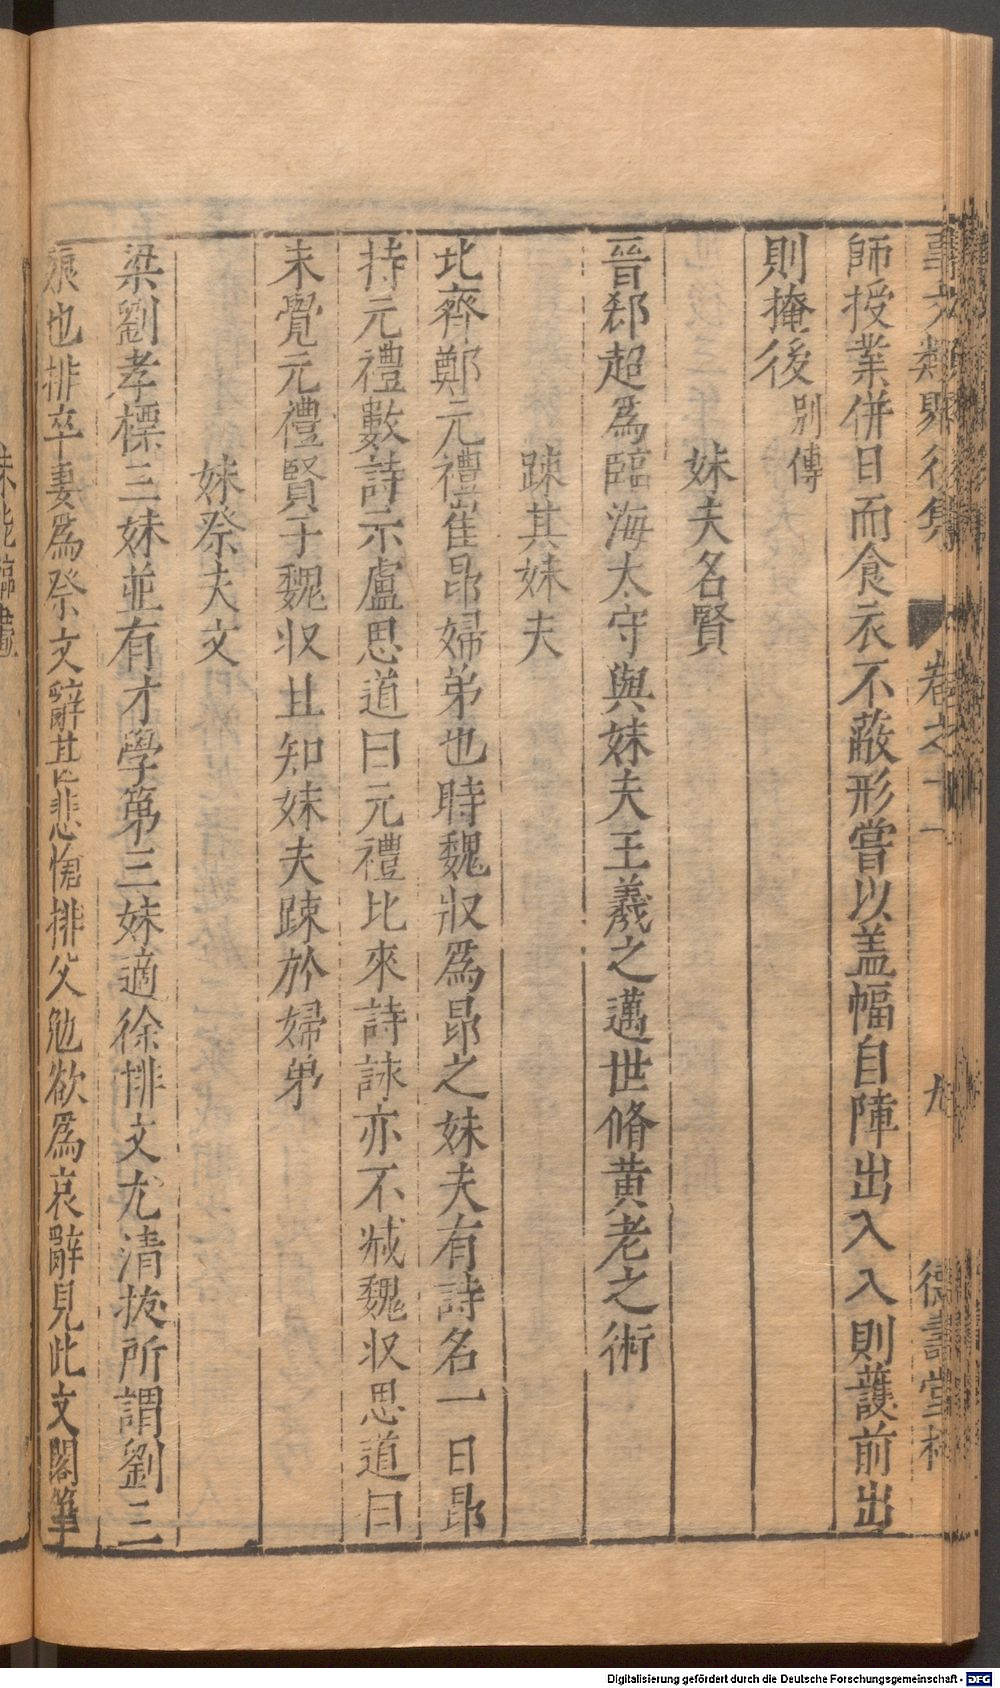 事文類聚後集　卷之十一　九　德壽堂梓
師授業併日而食衣不蔽形嘗以盖幅自障出入入則護前出
則掩後別傳
妹夫名賢
晉郄超爲臨海太守與妹夫王羲之邁世脩黄老之術
踈其妹夫
北齊鄭元禮崔昂婦弟也時魏收爲昂之妹夫有詩名一日昂
持元禮數詩示盧思道曰元禮比來詩詠亦不減魏收思道曰
未覺元禮賢于魏收且知妹夫踈於婦弟
妹祭夫文
梁劉孝標三妹並有才學第三妹適徐排文尤清拔所謂劉三
娘也排卒妻爲祭文辭甚悲愴排父勉欲爲哀辭見此文閣筆
Digitalisierung gefördert durch die Deutsche Forschungsgemeinschaft - DFG